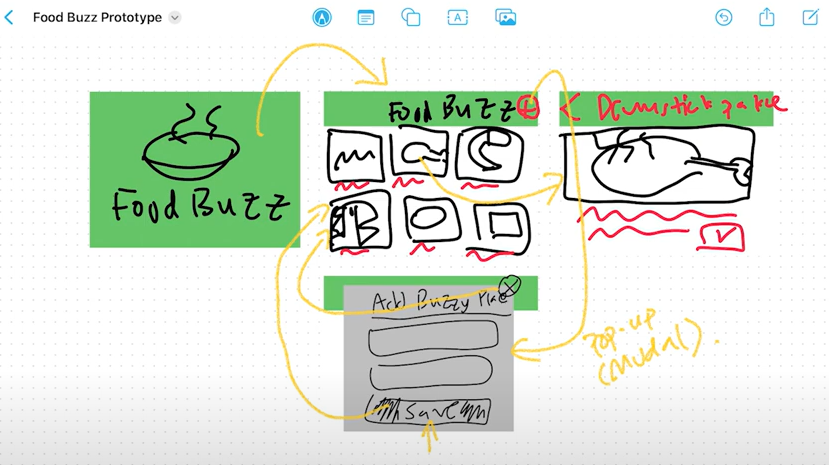 Food Buzz Prototype
A
Food Buzz
Food Buzz
< Drumstick
Add Buzzy Plate
Save
Pop-up
(Modal).